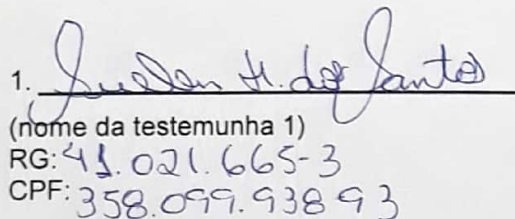 1. Suelen H. dos Santos
(nome da testemunha 1)
RG: 41.021.665-3
CPF: 358.099.938 93